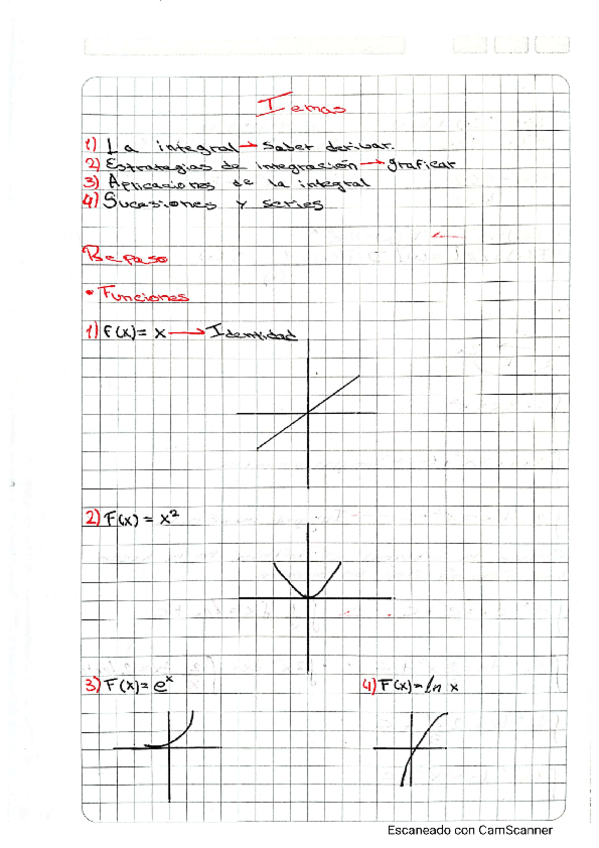 Temas
1) La integral → Saber derivar.
2) Estrategias de integración → graficar
3) Aplicaciones de la integral
4) Sucesiones y series
Repaso
• Funciones
1) F(x) = x → Identidad
2) F(x) = x²
3) F(x) = eˣ 4) F(x) = ln x
Escaneado con CamScanner